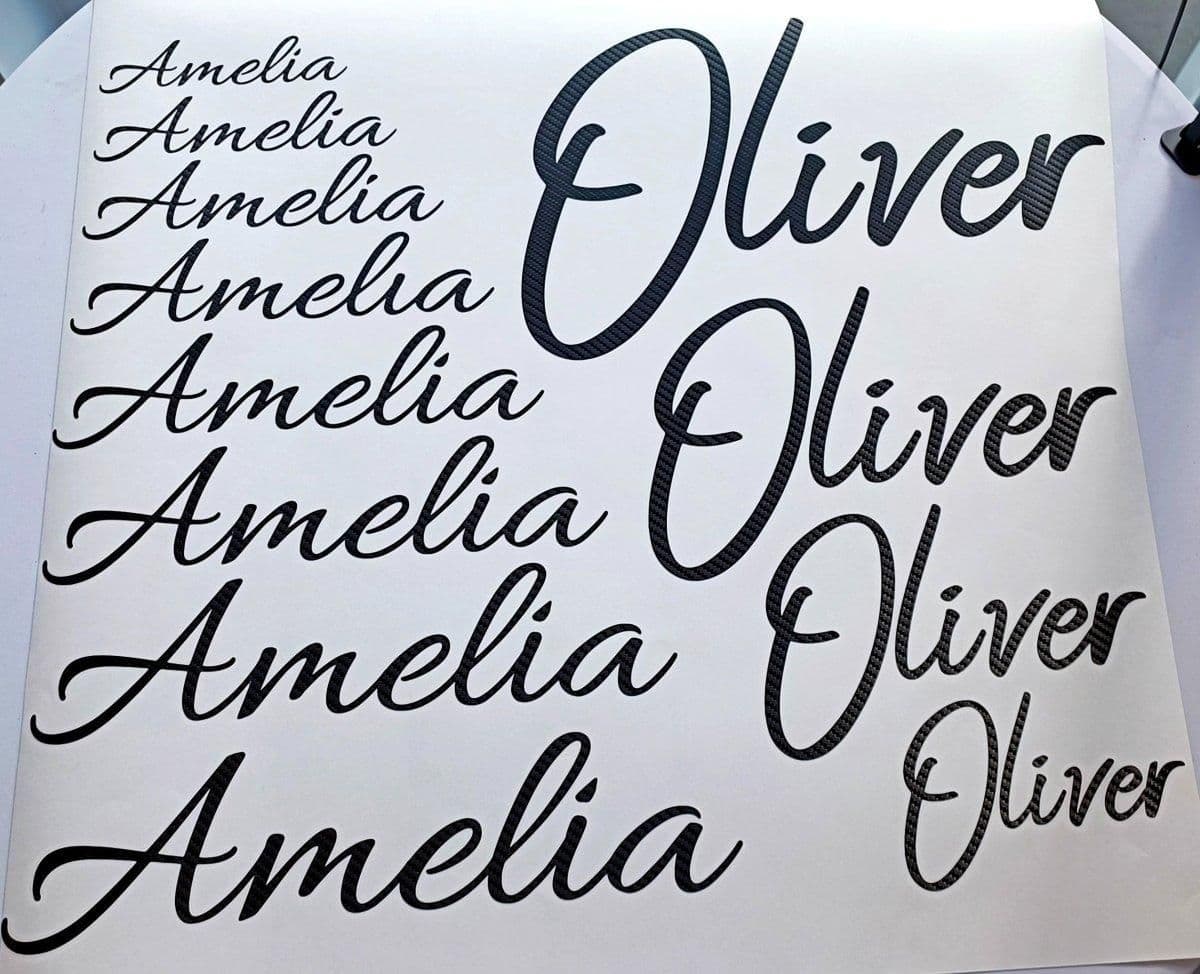 Amelia
Amelia
Amelia
Amelia
Amelia
Amelia
Amelia
Amelia
Oliver
Oliver
Oliver
Oliver